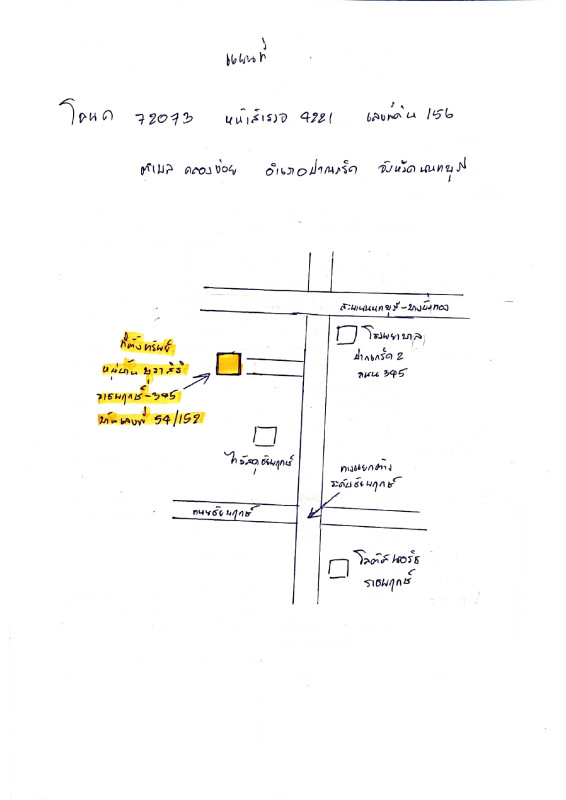 แผนที่
โฉนด 72073 หน้าสำรวจ 4221 เลขที่ดิน 156
ตำบล คลองข่อย อำเภอปากเกร็ด จังหวัดนนทบุรี
สะพานนนทบุรี-บางบัวทอง
โรงพยาบาล
ปากเกร็ด 2
ถนน 345
ที่ตั้งทรัพย์
หมู่บ้าน บุราสิริ
ราชพฤกษ์-345
บ้านเลขที่ 54/152
ไทวัสดุชัยพฤกษ์
ทางแยกต่าง
ระดับชัยพฤกษ์
ถนนชัยพฤกษ์
โลตัส นอร์ธ
ราชพฤกษ์